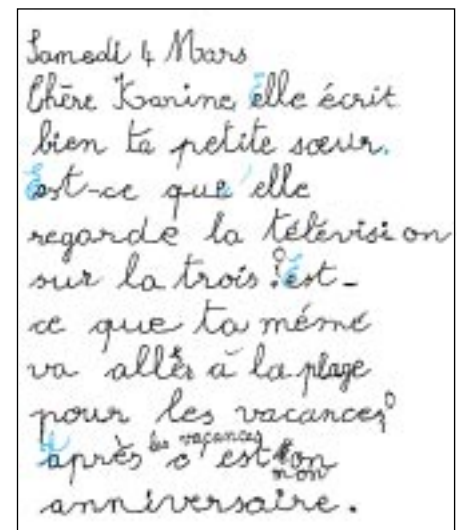 Samedi 4 Mars
Chère Karine elle écrit
bien ta petite sœur.
Est-ce que elle
regarde la télévision
sur la trois ? Est-
ce que ta mémé
va aller à la plage
pour les vacances ?
après les vacances c'est mon
anniversaire.